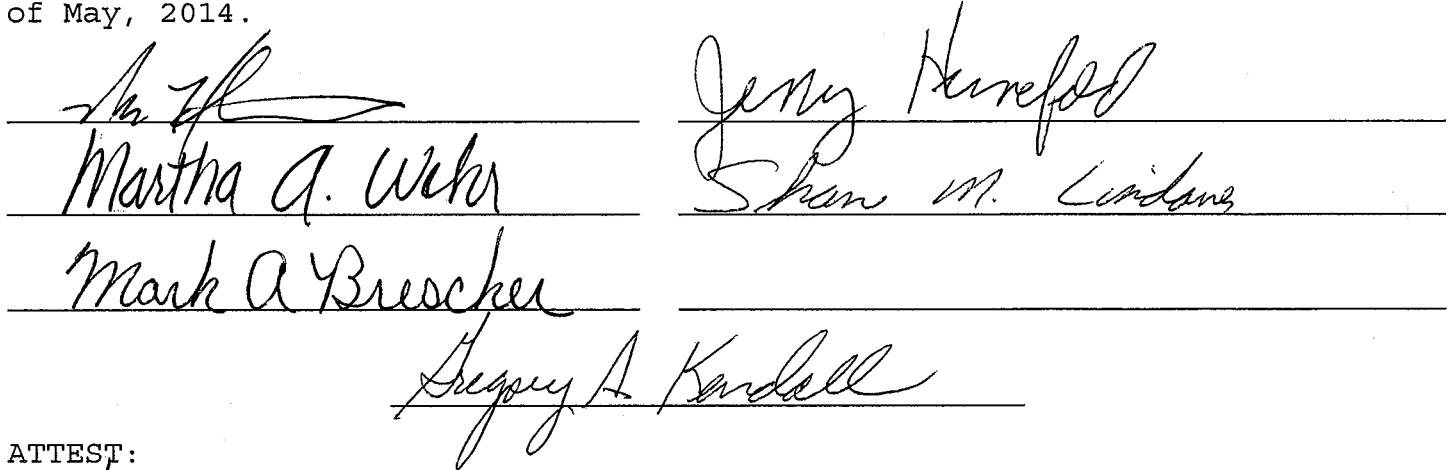 of May, 2014.
Jerry Hunefeld
Martha A. Wehr
Shan M. Lindauer
Mark A Brescher
Gregory A Kendall
ATTEST: